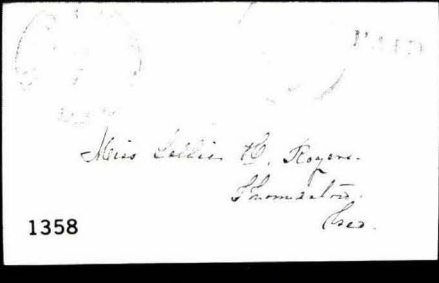 PAID
Miss Lellie H. Rogers.
Thomaston.
Geo.
1358